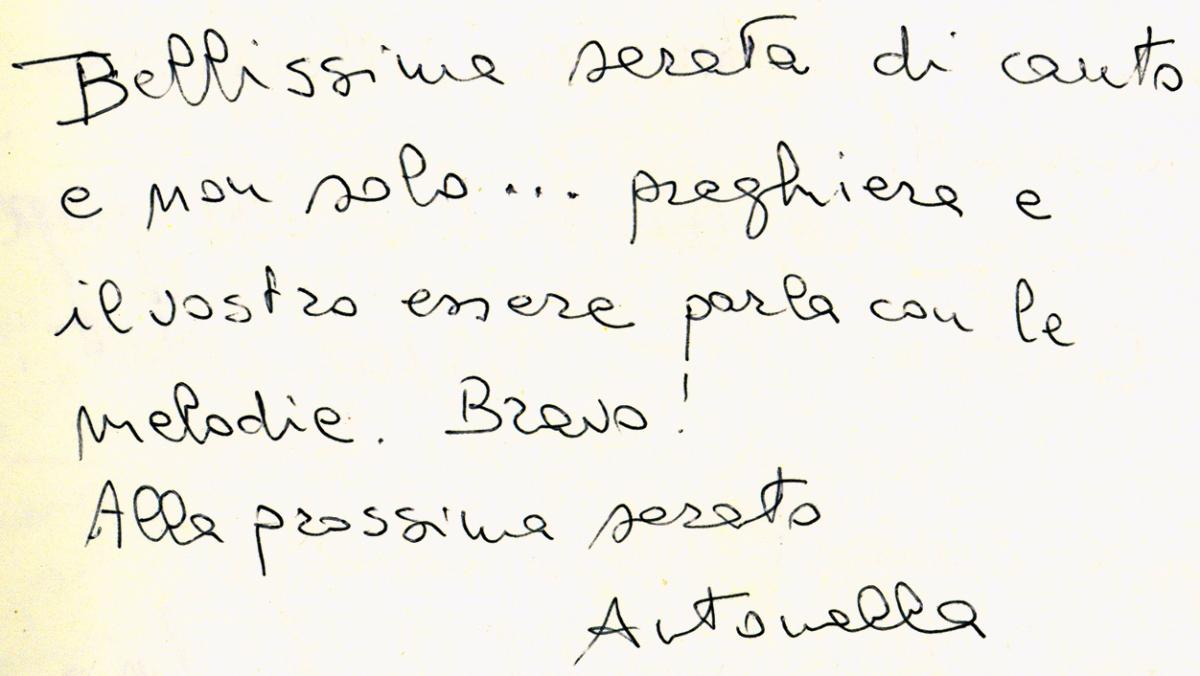 Bellissima serata di canto
e non solo... preghiera e
il vostro essere parla con le
melodie. Bravo!
Alla prossima serata
Antonella